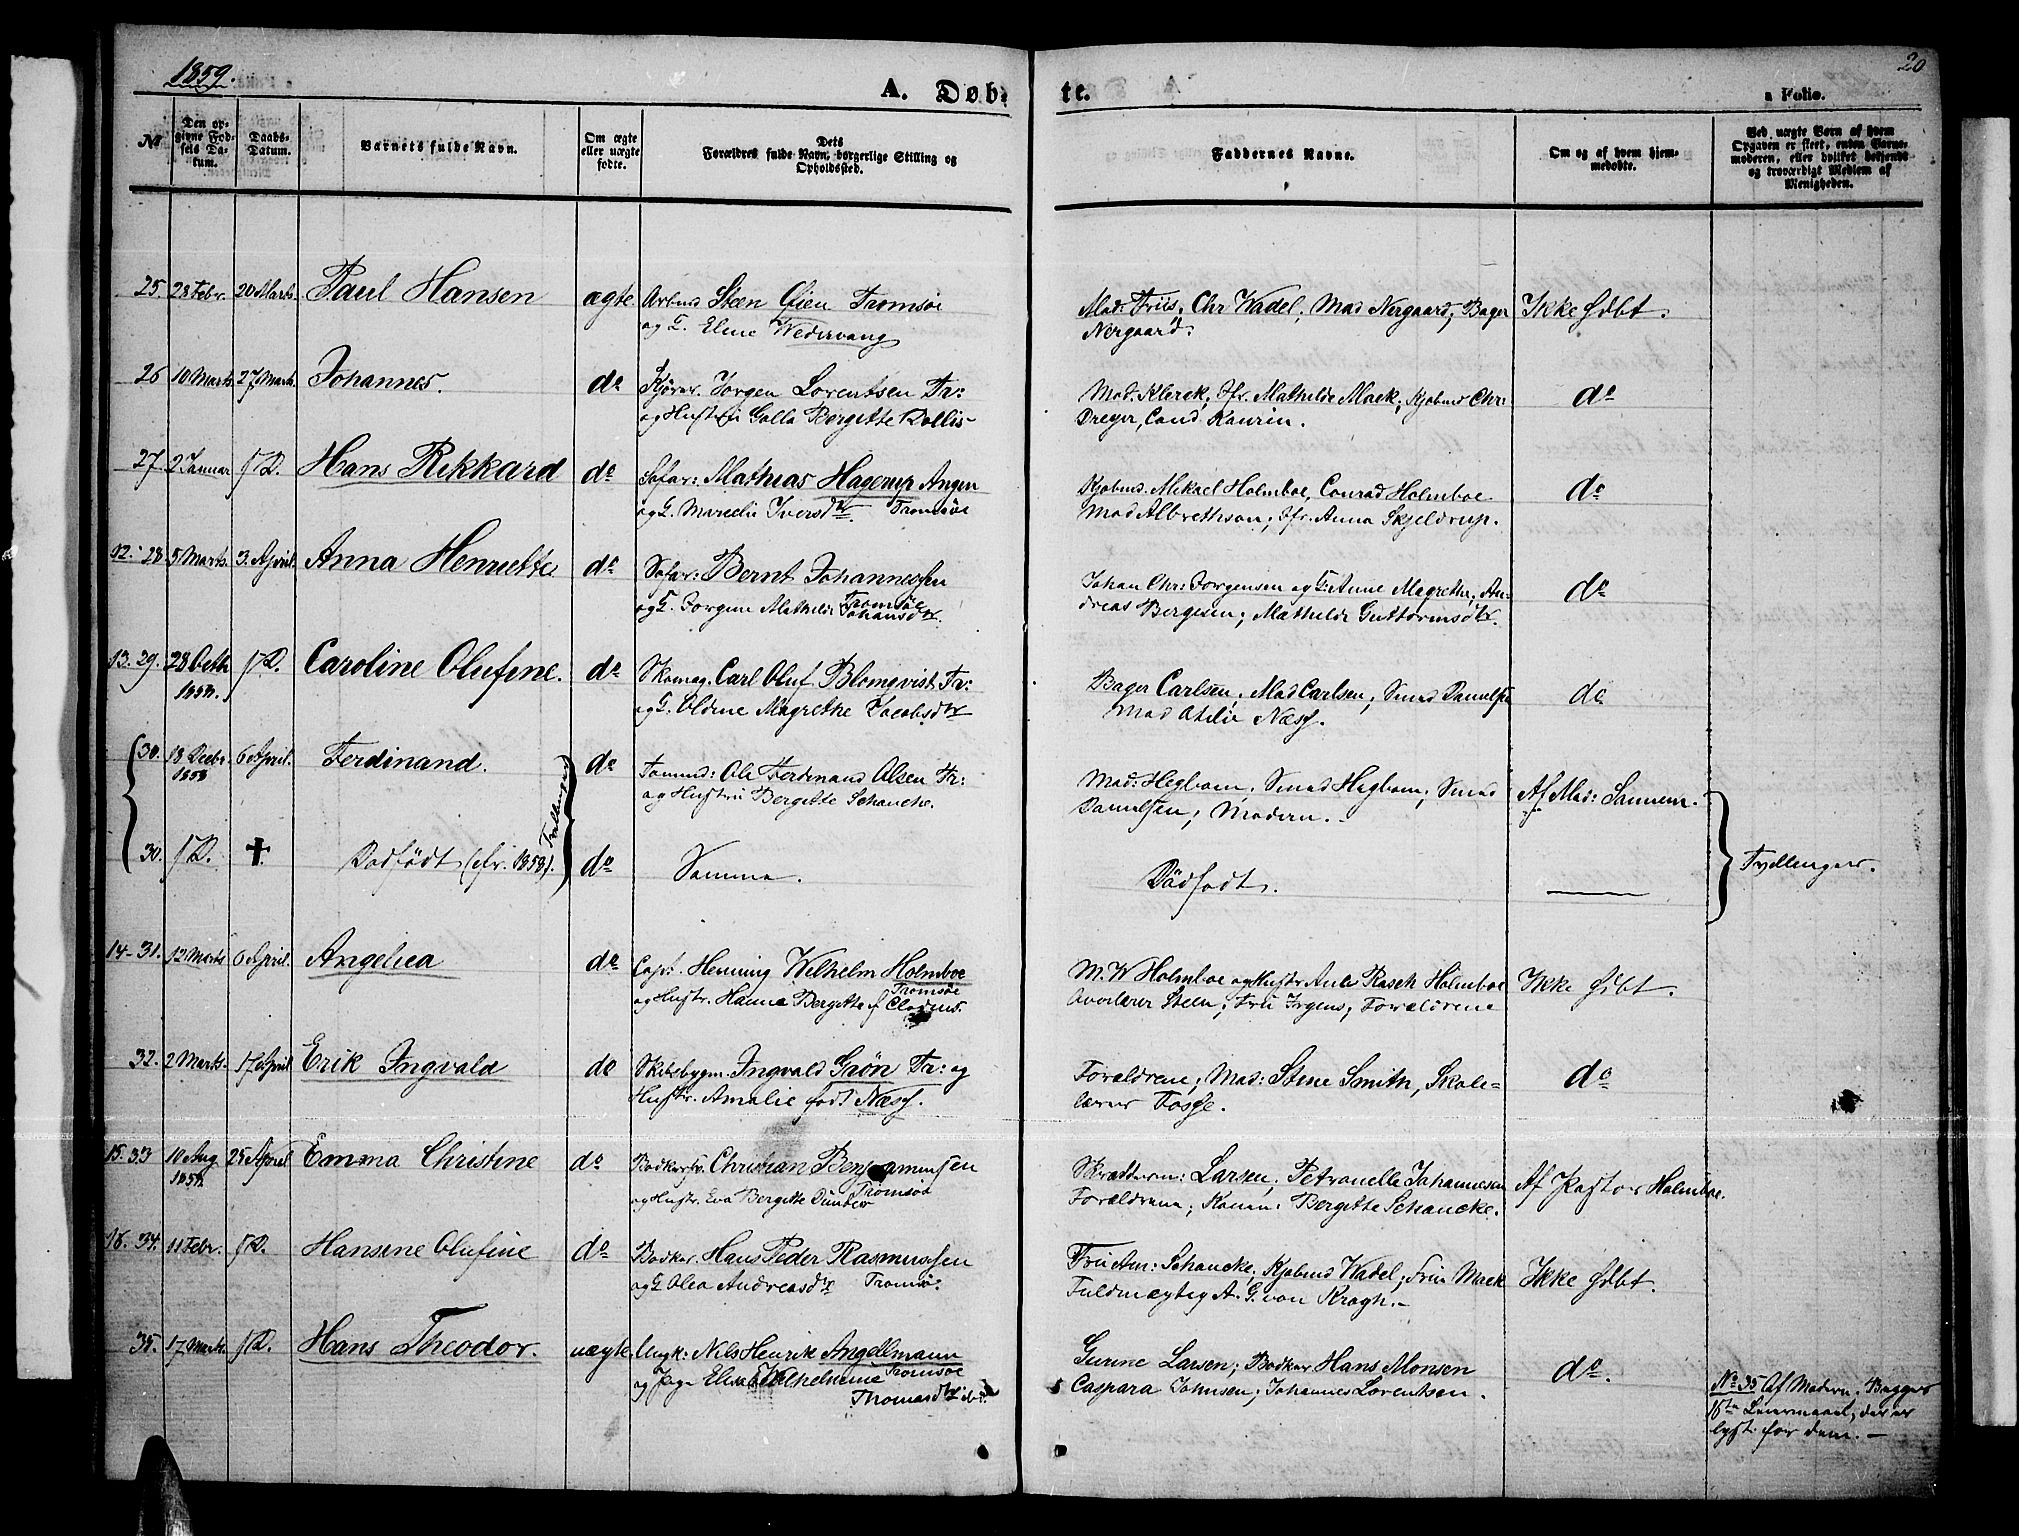 1859.
A. Døb-
te.
20
a Folio.
No
Den op-
givne Fød-
sels Da-
tum.
Daabs-
Datum.
Barnets fulde Navn.
Om ægte
eller uægte
fødte.
Dets
Forældres fulde Navn, borgerlige Stilling og
Opholdssted.
Faddernes Navne.
Om og af hvem hjem-
medøbte.
Ved uægte Børn af hvem
Opgaven er skeet, enten Barne-
moderen, eller hvilket bekjendt
og troværdigt Medlem af
Menigheden.
25. 28 Febr. 20 Marts. Paul Hansen ægte. Arbmd Steen Øien Tromsøe
og G. Eline Wedervang
Mad: Friis, Chr Wadel, Mad Nergaard, Bager
Nergaard.
Ikke hdbt.
26 10 Marts. 27 Marts. Johannes. do Jørgen Lorentsen Tr:
og Hustru Galla Bergitte Rollis-
Mad. Klerck, Jfr. Mathilde Mack, Kjøbmd Chr:
Dreyer, Cand Kaurin.
do
27 2 Januar S.D. Hans Rikkard do Søfar: Mathias Hagerup Angen
og G. Marcelie Iversdtr. Tromsøe
Kjøbmd. Mikael Holmboe, Conrad Holmboe
Mad Albrethson, Jfr. Anna Skjeldrup.
do
12. 28. 5 Marts. 3. April. Anna Henriette do Søfar: Bernt Johannessen
Tromsøe
og G. Jorgine Mathilde Johansdtr.
Johan Chr: Jørgensen og G: Anne Magrethe, An-
dreas Bergesen; Mathilde Guttormsdtr.
do
13. 29. 28 Octb 1858. S.D. Caroline Olufine. do Skomag. Carl Oluf Blomqvist Tr:
og G: Oldine Magrethe Jacobsdtr
Bager Carlsen, Mad Carlsen, Smed Danielsen
Mad Otilie Næss.
do
30. 18 Decbr. 1858 6 April. Ferdinand. do Tømmd: Ole Ferdinand Olsen Tr:
og Hustru Bergitte Schancke.
Mad: Hegbom, Smed Hegbom, Smed
Danielsen; Modern.
Af Mad: Sannem.
Tvillinger
30. S.D. † Dødfødt (cfr. 1858). do Samme.
Dødfødt.
Tvillinger.
14- 31. 12 Marts 6 April. Angelica do Capt. Henning Wilhelm Holmboe
Tromsøe
og Hustr. Hanna Bergitte f Clodius.
M. W Holmboe og Hustr Anle Rasch Holmboe
Overlærer Steen, Fru Irgens, Forældrene
Ikke hdbt.
32. 2 Marts. 17 April Erik Ingvald do Skibsbygm. Ingvald Grøn Tr: og
Hustr. Amalie født Næss.
Forældrene, Mad: Stine Smith, Skole-
lærer Fosse.
do
15. 33 10 Aug 1858. 25 April Emma Christine do Bødkersv. Christian Benjaminsen
Tromsøe
og Hustr. Eva Bergitte
Skrædderm: Larsen, Petronelle Johannesen
Forældrene; Konen: Bergitte Schancke.
Af Pastor Holmboe.
16. 34. 11 Febr. S.D. Hansine Olufine do Bødker. Hans Peder Rasmussen
og G Olea Andreasdtr Tromsøe
Fru Am: Schancke, Kjøbmd Wadel, Fru Mack
Fuldmægtig A. G. von Krogh.-
Ikke hdbt.
35. 17 Marts. S.D. Hans Theodor. uægte. Ungk: Nils Henrik Angellmann
Tromsøe
og Pige Elisa Wilhelmine
Thomasdtr ibd.
Gurine Larsen; Bødker Hans Monsen
Caspara Johnsen; Johannes Lorentsen.
do.
No 35 Af Modern. Begges
1ste Leiermaal, der er
lyst for dem.-